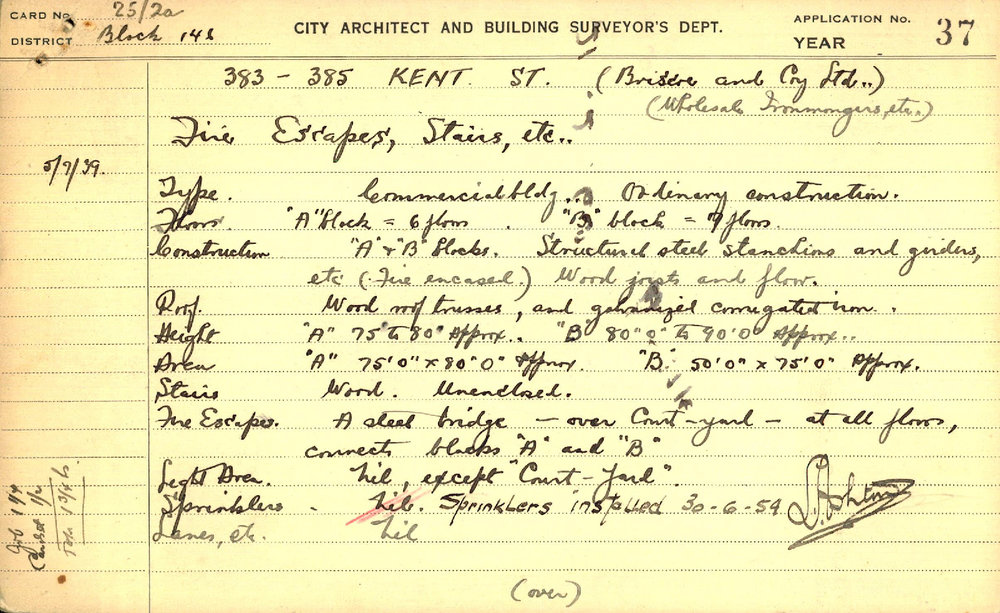 CARD No. 25/2a
DISTRICT Block 148
CITY ARCHITECT AND BUILDING SURVEYOR'S DEPT.
APPLICATION No.
YEAR
37
383 - 385 KENT ST. (Briscoe and Coy Ltd..)
(Wholesale Ironmongers, etc.)
Fire Escapes, Stairs, etc..
5/7/39.
Type. Commercial bldg.. Ordinary construction.
Floors "A" block = 6 floors. "B" block = 7 floors.
Construction "A" & "B" blocks. Structural steel stanchions and girders,
etc (Fire encased.) Wood joists and floor.
Roof. Wood roof trusses, and galvanized corrugated iron.
Height "A" 75' to 80' Approx.. "B" 80'0" to 90'0" Approx..
Area "A" 75'0" x 80'0" Approx. "B". 50'0" x 75'0" Approx.
Stairs Wood. Unenclosed.
Fire Escapes. A steel bridge - over Court-yard - at all floors,
connects blocks "A" and "B"
Light Area. Nil, except "Court-Yard".
Sprinklers - Nil. Sprinklers installed 30-6-54
Lanes, etc. Nil
(over)